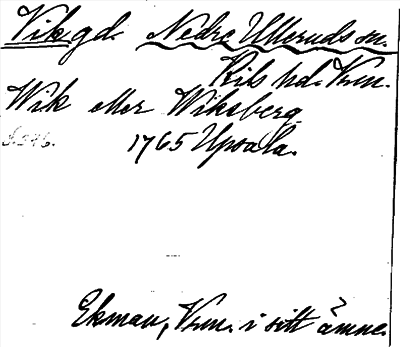 Vik gd. Nedre Ulleruds sn.
Kils hd. Vrm.
Wik eller Wiksberg
1765 Upsala.
Ekman, Vrm. i sitt ämne.